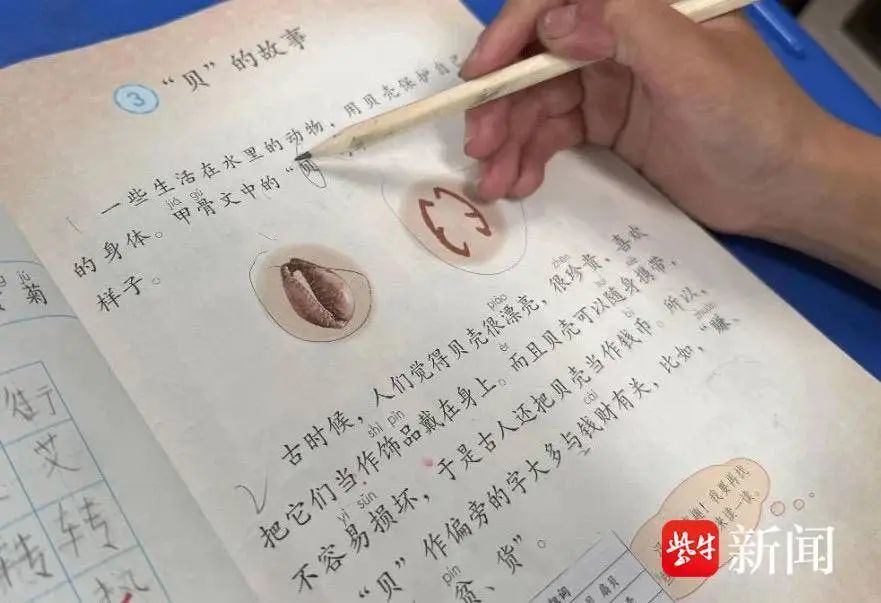 3 “贝”的故事
一些生活在水里的动物，用贝壳保护自己
jiǎ gǔ
的身体。甲骨文中的“贝
样子。
piào zhēn
古时候，人们觉得贝壳很漂亮，很珍贵，喜欢
shì pǐn ér
把它们当作饰品戴在身上。而且贝壳可以随身携带，
yì sǔn bì
不容易损坏，于是古人还把贝壳当作钱币。所以，
cái zhuàn
“贝”作偏旁的字大多与钱财有关，比如，“赚、
pín
贫、货”。
趣！我要再找
来读一读。
扇贝
jú
菊
艾
转 转
紫牛新闻